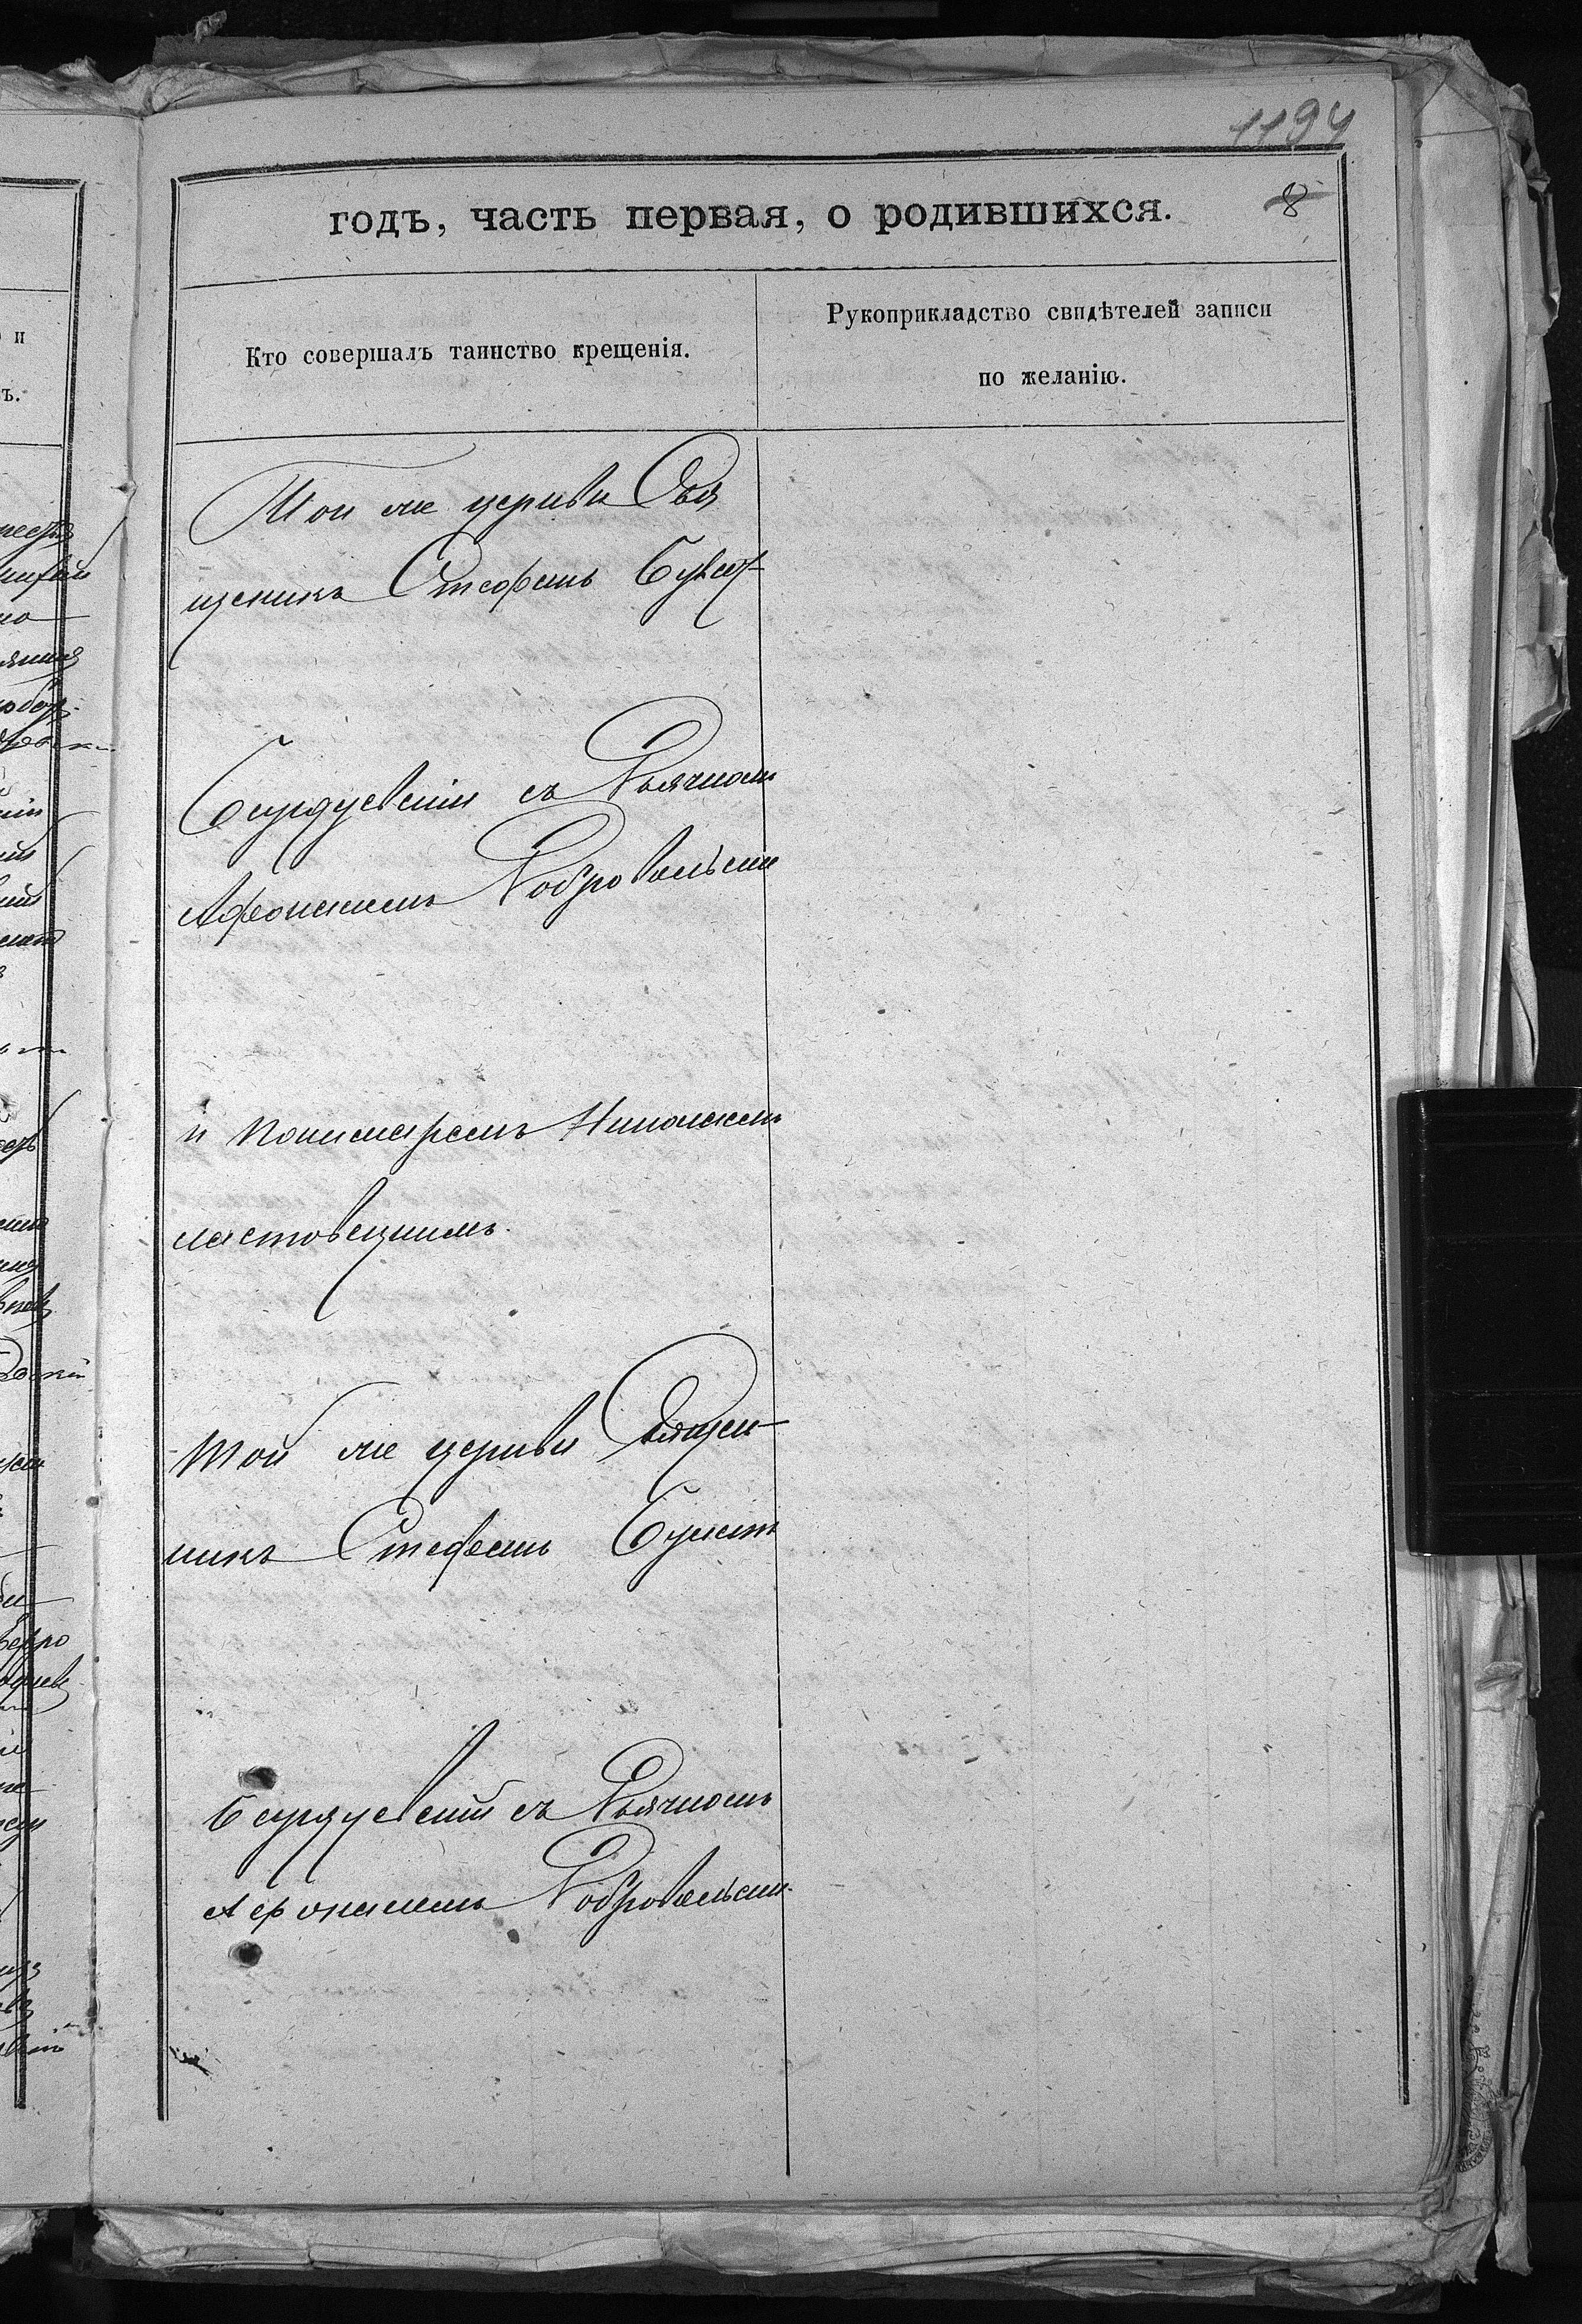 1194
годъ, часть первая, о родившихся. 8
Кто совершалъ таинство крещенія.
Рукоприкладство свидѣтелей записи
по желанію.
Той же церкви Свя
щеникъ Стефанъ
съ Дьячкомъ
Афонасіемъ Добровольски
и Пономаремъ Николаемъ
ластовецкимъ.
Той же церкви Священ-
никъ Стефанъ
съ Дьячкомъ
Афонасіемъ Добровольским